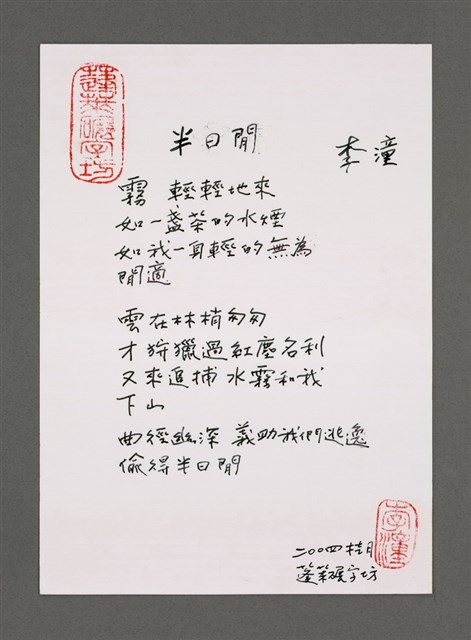 蓬萊碾字坊
半日閒
李潼
霧 輕輕地來
如一盞茶的水煙
如我一身輕的無為
閒適
雲在林梢匆匆
才狩獵過紅塵名利
又來追捕 水霧和我
下山
曲徑幽深 義助我們逃逸
偷得半日閒
二〇〇四桂月
蓬萊碾字坊
李潼